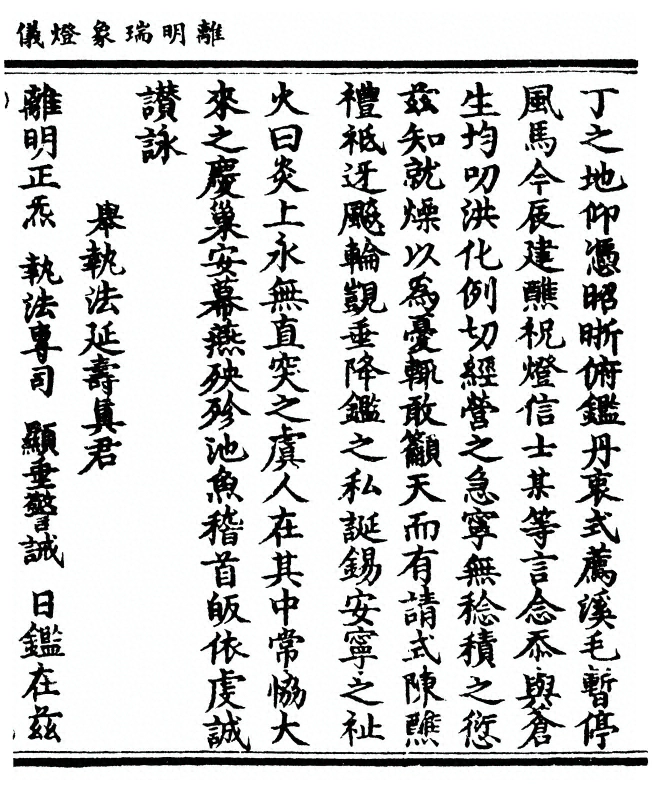 離明瑞象燈儀
丁之地仰憑昭晣俯鑑丹衷式薦溪毛暫停
風馬今辰建醮祝燈信士某等言念忝與蒼
生均叨洪化例切經營之急寧無稔積之愆
茲知就燥以為憂輙敢籲天而有請式陳醮
禮祗迓飈輪覬垂降鑑之私誕錫安寧之祉
火曰炎上永無直突之虞人在其中常恊大
來之慶巢安幕燕殃殄池魚稽首皈依虔誠
讃詠
舉執法延壽真君
離明正炁 執法專司 顯垂警誡 日鑑在茲